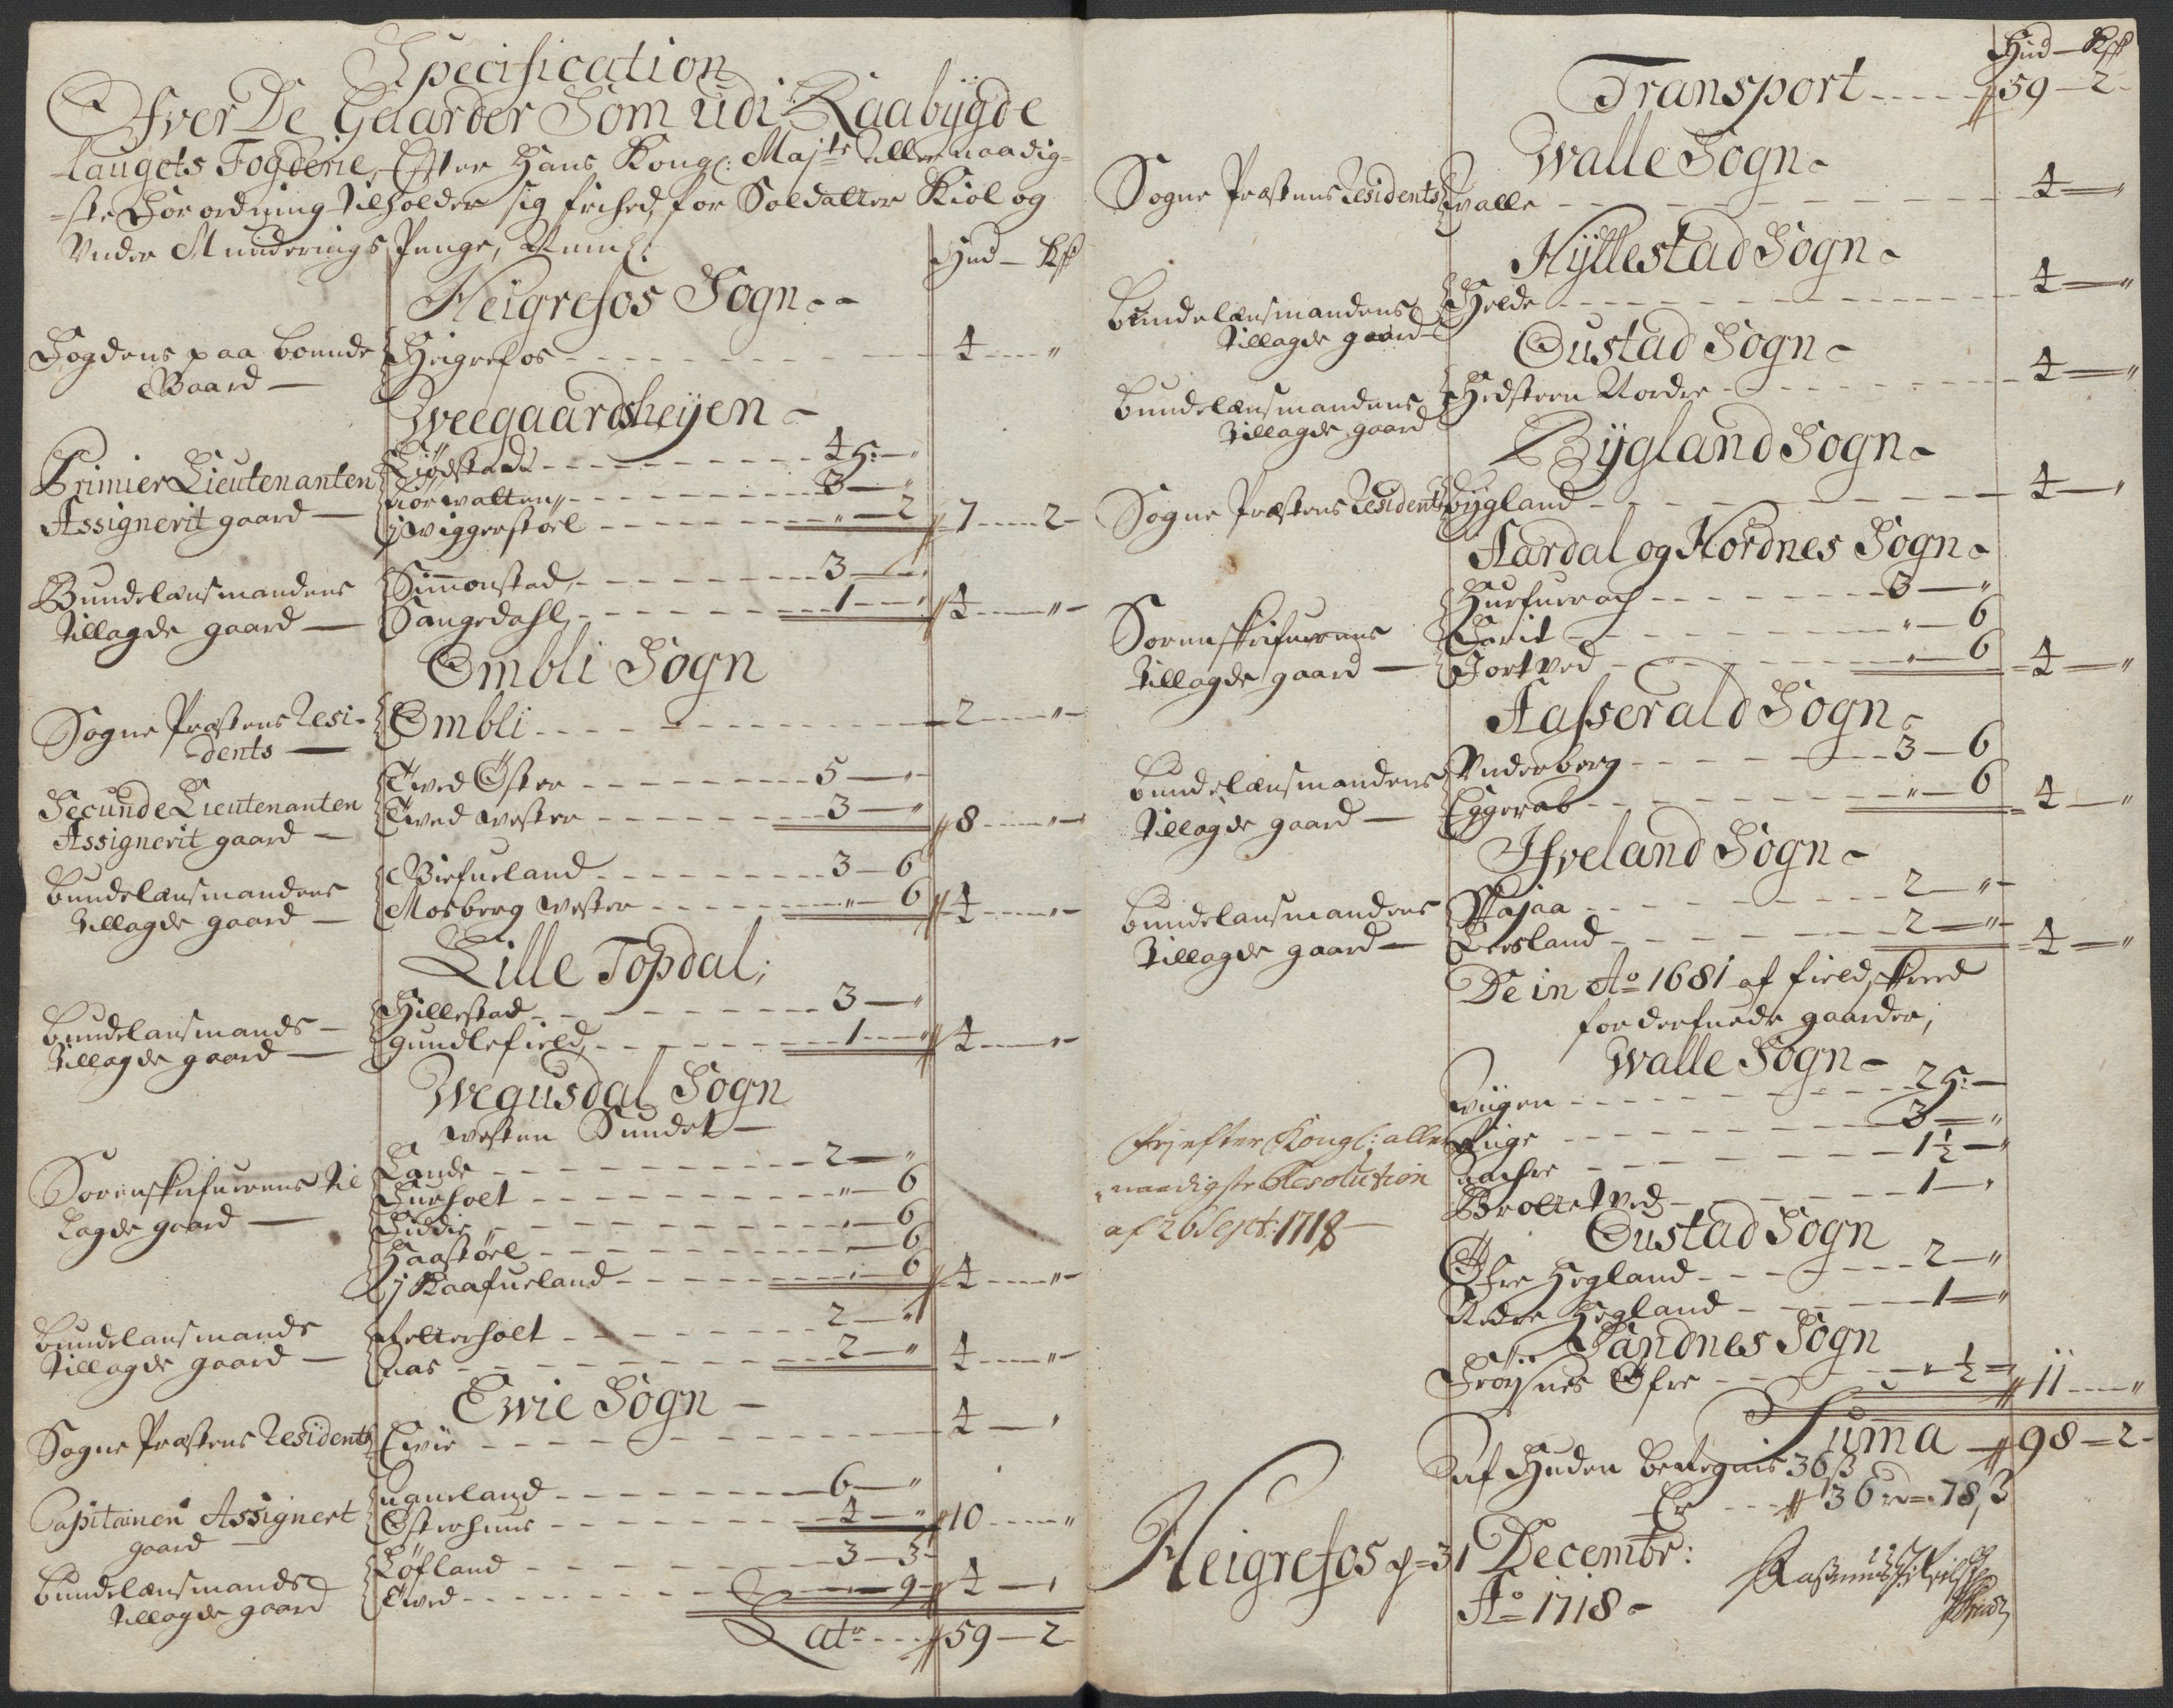 Specification
Ofver De Gaarder Som udi Raabÿgde
laugets Fogderie, Efter Hans Kongl: Majts allernaadig-
ste Forordning tilholder sig frihed for Soldatter Kiol og
Under Munderings Penge, Nemlig:
Hud — Kß
Heigrefos Sogn
Fogdens paa boende Gaard — Heigrefos 4 "
Weegaardsheÿen
Primier Lieutenanten Assignerit gaard —
Liødstad 4 5: "
Horvatten 3 — "
j Wiggerstøel " — 2 7 — 2
Bundelænsmandens tillagde gaard —
Simmonstad 3 — "
Sangedahl 1 — " 4 — "
Ombli Sogn
Sogne Præstens Residents — Ombli 2 — "
Secunde Lieutenanten Assignerit gaard —
Tved Øster 5 — "
Tved vester 3 — " 8 — "
Bundelænsmandens tillagde gaard —
Birfueland 3 — 6
Mosberg vester " — 6 4 — "
Lille Topdal;
Bundelænsmands tillagde gaard —
Hillestad 3 — "
gundlefield 1 — " 4 — "
Wegusdal Sogn
vesten Sundet —
Sorenskrifuerens til lagde gaard —
Lande 2 — "
Furholt " — 6
Liddie " — 6
Haastøel " — 6
j Kaafueland " — 6 4 — "
Bundelænsmands tillagde gaard —
Fetterholt 2 — "
naas 2 — " 4 — "
Ewie Sogn
Sogne Præstens Residents Ewie 4 — "
Capitainen Assignert gaard —
naueland 6 — "
Østerhuus 4 — " 10 — "
Bundelænsmands tillagde gaard
Løfland 3 — 3
Tved " — 9 4 — "
Latr 59 — 2
Hud — Kß
Transport 59 — 2
Walle Sogn
Sogne Præstens Residents Walle 4 — "
Hÿllestad Sogn
Bundelænsmandens tillagde gaard Helde 4 — "
Oustad Sogn
Bundelænsmandens tillagde gaard Hedstren Nordre 4 — "
Bÿgland Sogn
Sogne Præstens Residents Bÿgland 4 — "
Aardal og Hordnes Sogn
Sorenskrifuerens tillagde gaard —
Hurfuerag 3 — "
Carit " — 6
Fortved " — 6 4 — "
Aasserald Sogn
Bundelænsmandens tillagde gaard —
Underberg 3 — 6
Eggeraas " — 6 4 — "
Ifveland Sogn
Bundelænsmandens tillagde gaard —
Skajaa 2 — "
Leesland 2 — " 4 — "
De in Ao 1681 af field, skreed
fordærfuede gaarder;
Walle Sogn
Frj efter Kongl: aller
naadigste Resolution
af 26 Sept: 1718 —
Viigen 2 5: —
Riige 3 — "
Aachre 1½ — "
Brottetved 1 — "
Oustad Sogn
Øfre Hegland 2 — "
Nedre Hegland 1 — "
Sandnes Sogn
Frøÿsnes Øfre " ½ 11 — "
Suma 98 — 2
Daf Huden beregnis 36 ß
Er 36 rd = 78 ß
Heigrefos d = 31 Decembr:
Ao 1718